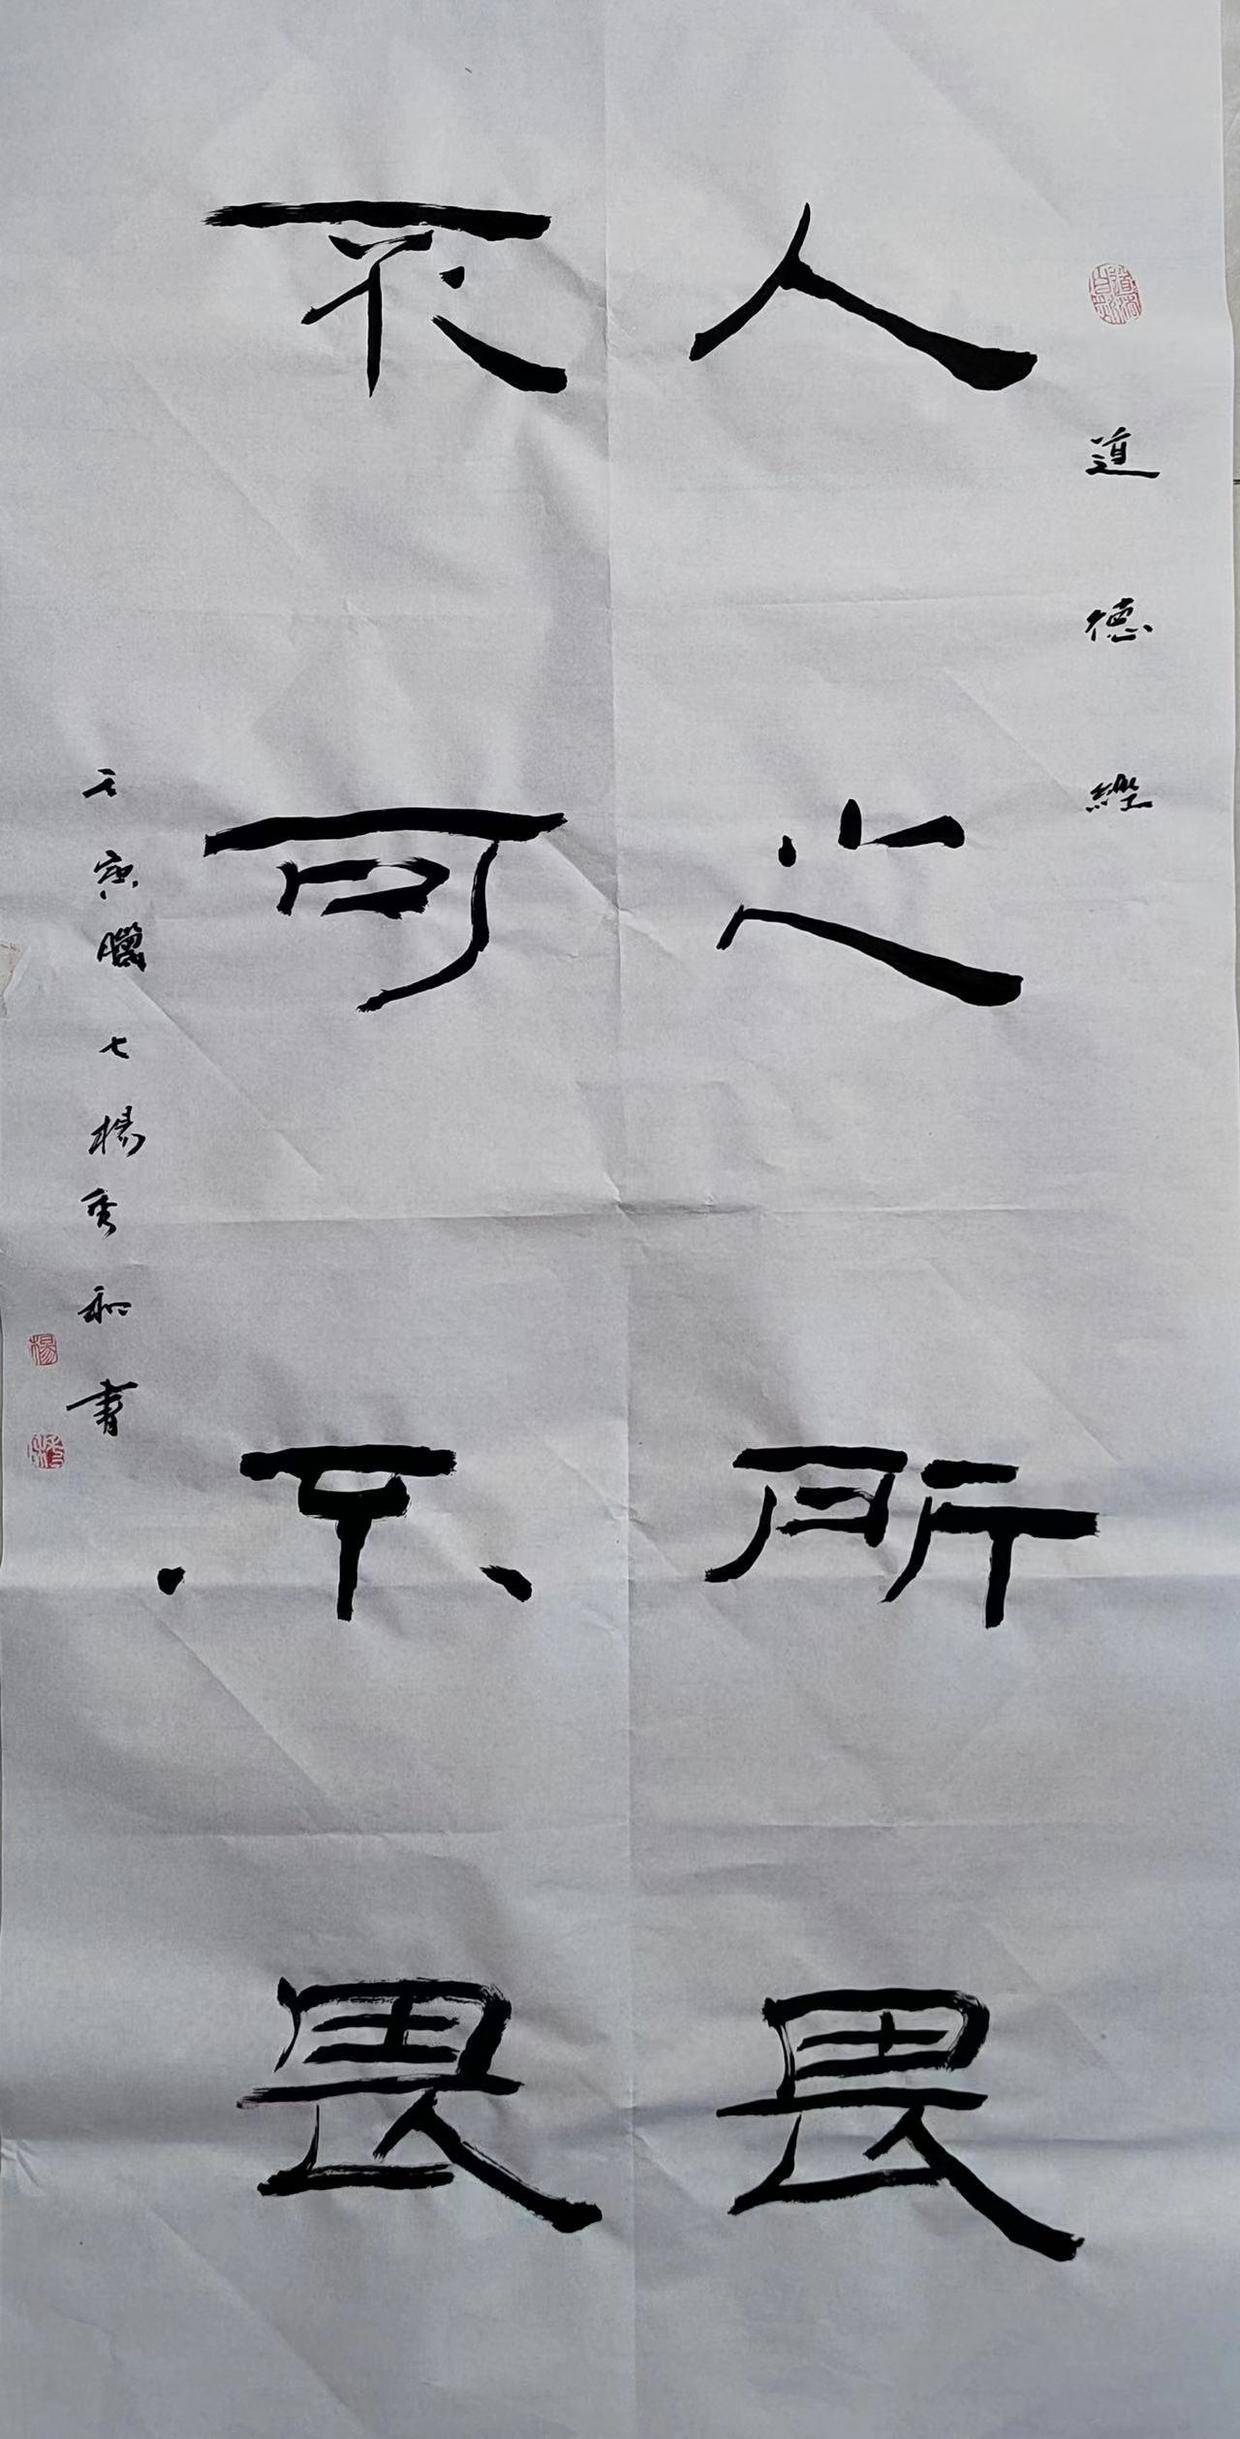 道德經
人之所畏
不可不畏
壬寅臘七楊秀和書
楊